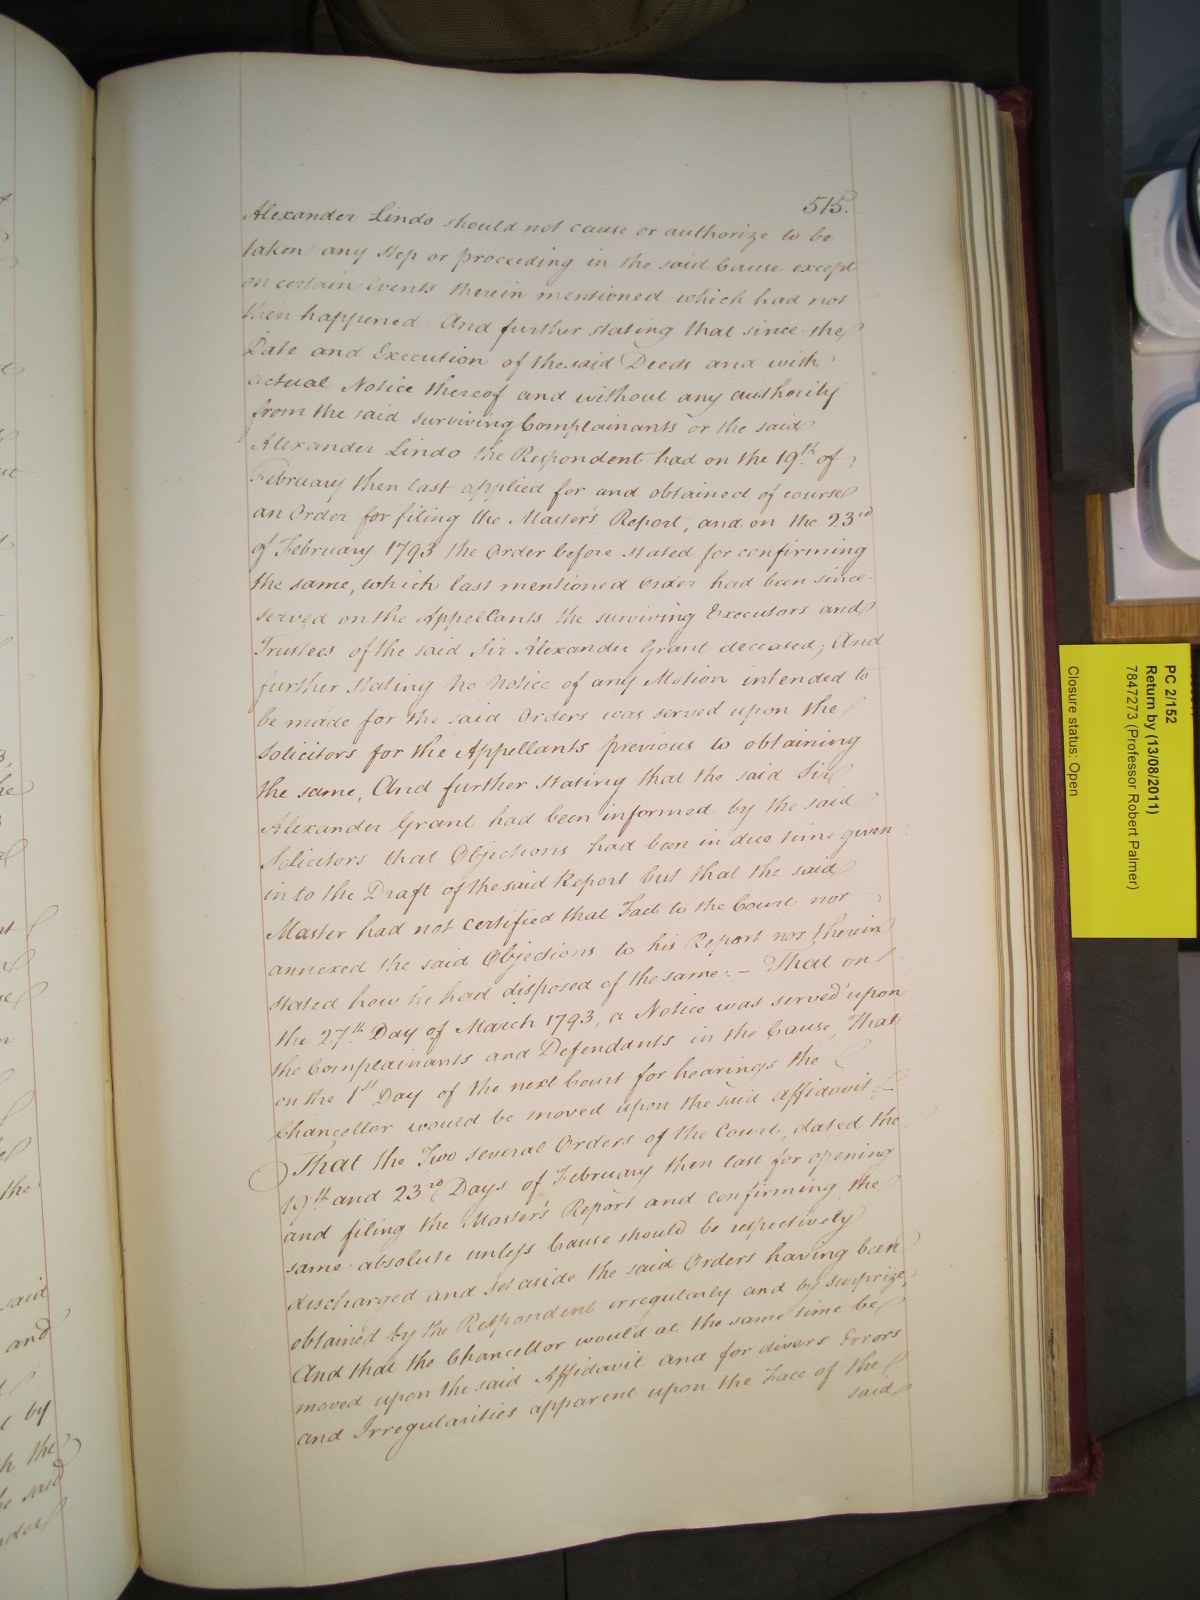 515.
Alexander Lindo should not cause or authorize to be
taken any step or proceeding in the said Cause except
on certain Events therein mentioned which had not
then happened And further stating that since the
Date and Execution of the said Deeds and with
actual Notice thereof and without any authority
from the said surviving Complainants or the said
Alexander Lindo the Respondent had on the 19th. of
February then last applied for and obtained of course
an Order for filing the Master's Report, and on the 23rd
of February 1793 the Order before stated for confirming
the same, which last mentioned Order had been since
served on the Appellants the surviving Executors and
Trustees of the said Sir Alexander Grant deceased; And
further stating no Notice of any Motion intended to
be made for the said Orders was served upon the
Solicitors for the Appellants previous to obtaining
the same, And further stating that the said Sir
Alexander Grant had been informed by the said
Solicitors that Objections had been in due time given
in to the Draft of the said Report but that the said
Master had not certified that Fact to the Court nor
annexed the said Objections to his Report nor therein
stated how he had disposed of the same: - That on
the 27th. Day of March 1793, a Notice was served upon
the Complainants and Defendants in the Cause, That
on the 1st Day of the next Court for hearings the
Chancellor would be moved upon the said Affidavit
That the Two several Orders of the Court, dated the
19th and 23rd Days of February then last for opening
and filing the Master's Report and confirming the
same absolute unless Cause should be respectively
discharged and set aside the said Orders having been
obtained by the Respondent irregularly and by surprize,
And that the Chancellor would at the same time be
moved upon the said Affidavit and for divers Errors
and Irregularities apparent upon the Face of the
said
said
and
by
the
the
PC 2/152
Return by (13/08/2011)
7847273 (Professor Robert Palmer)
Closure status: Open